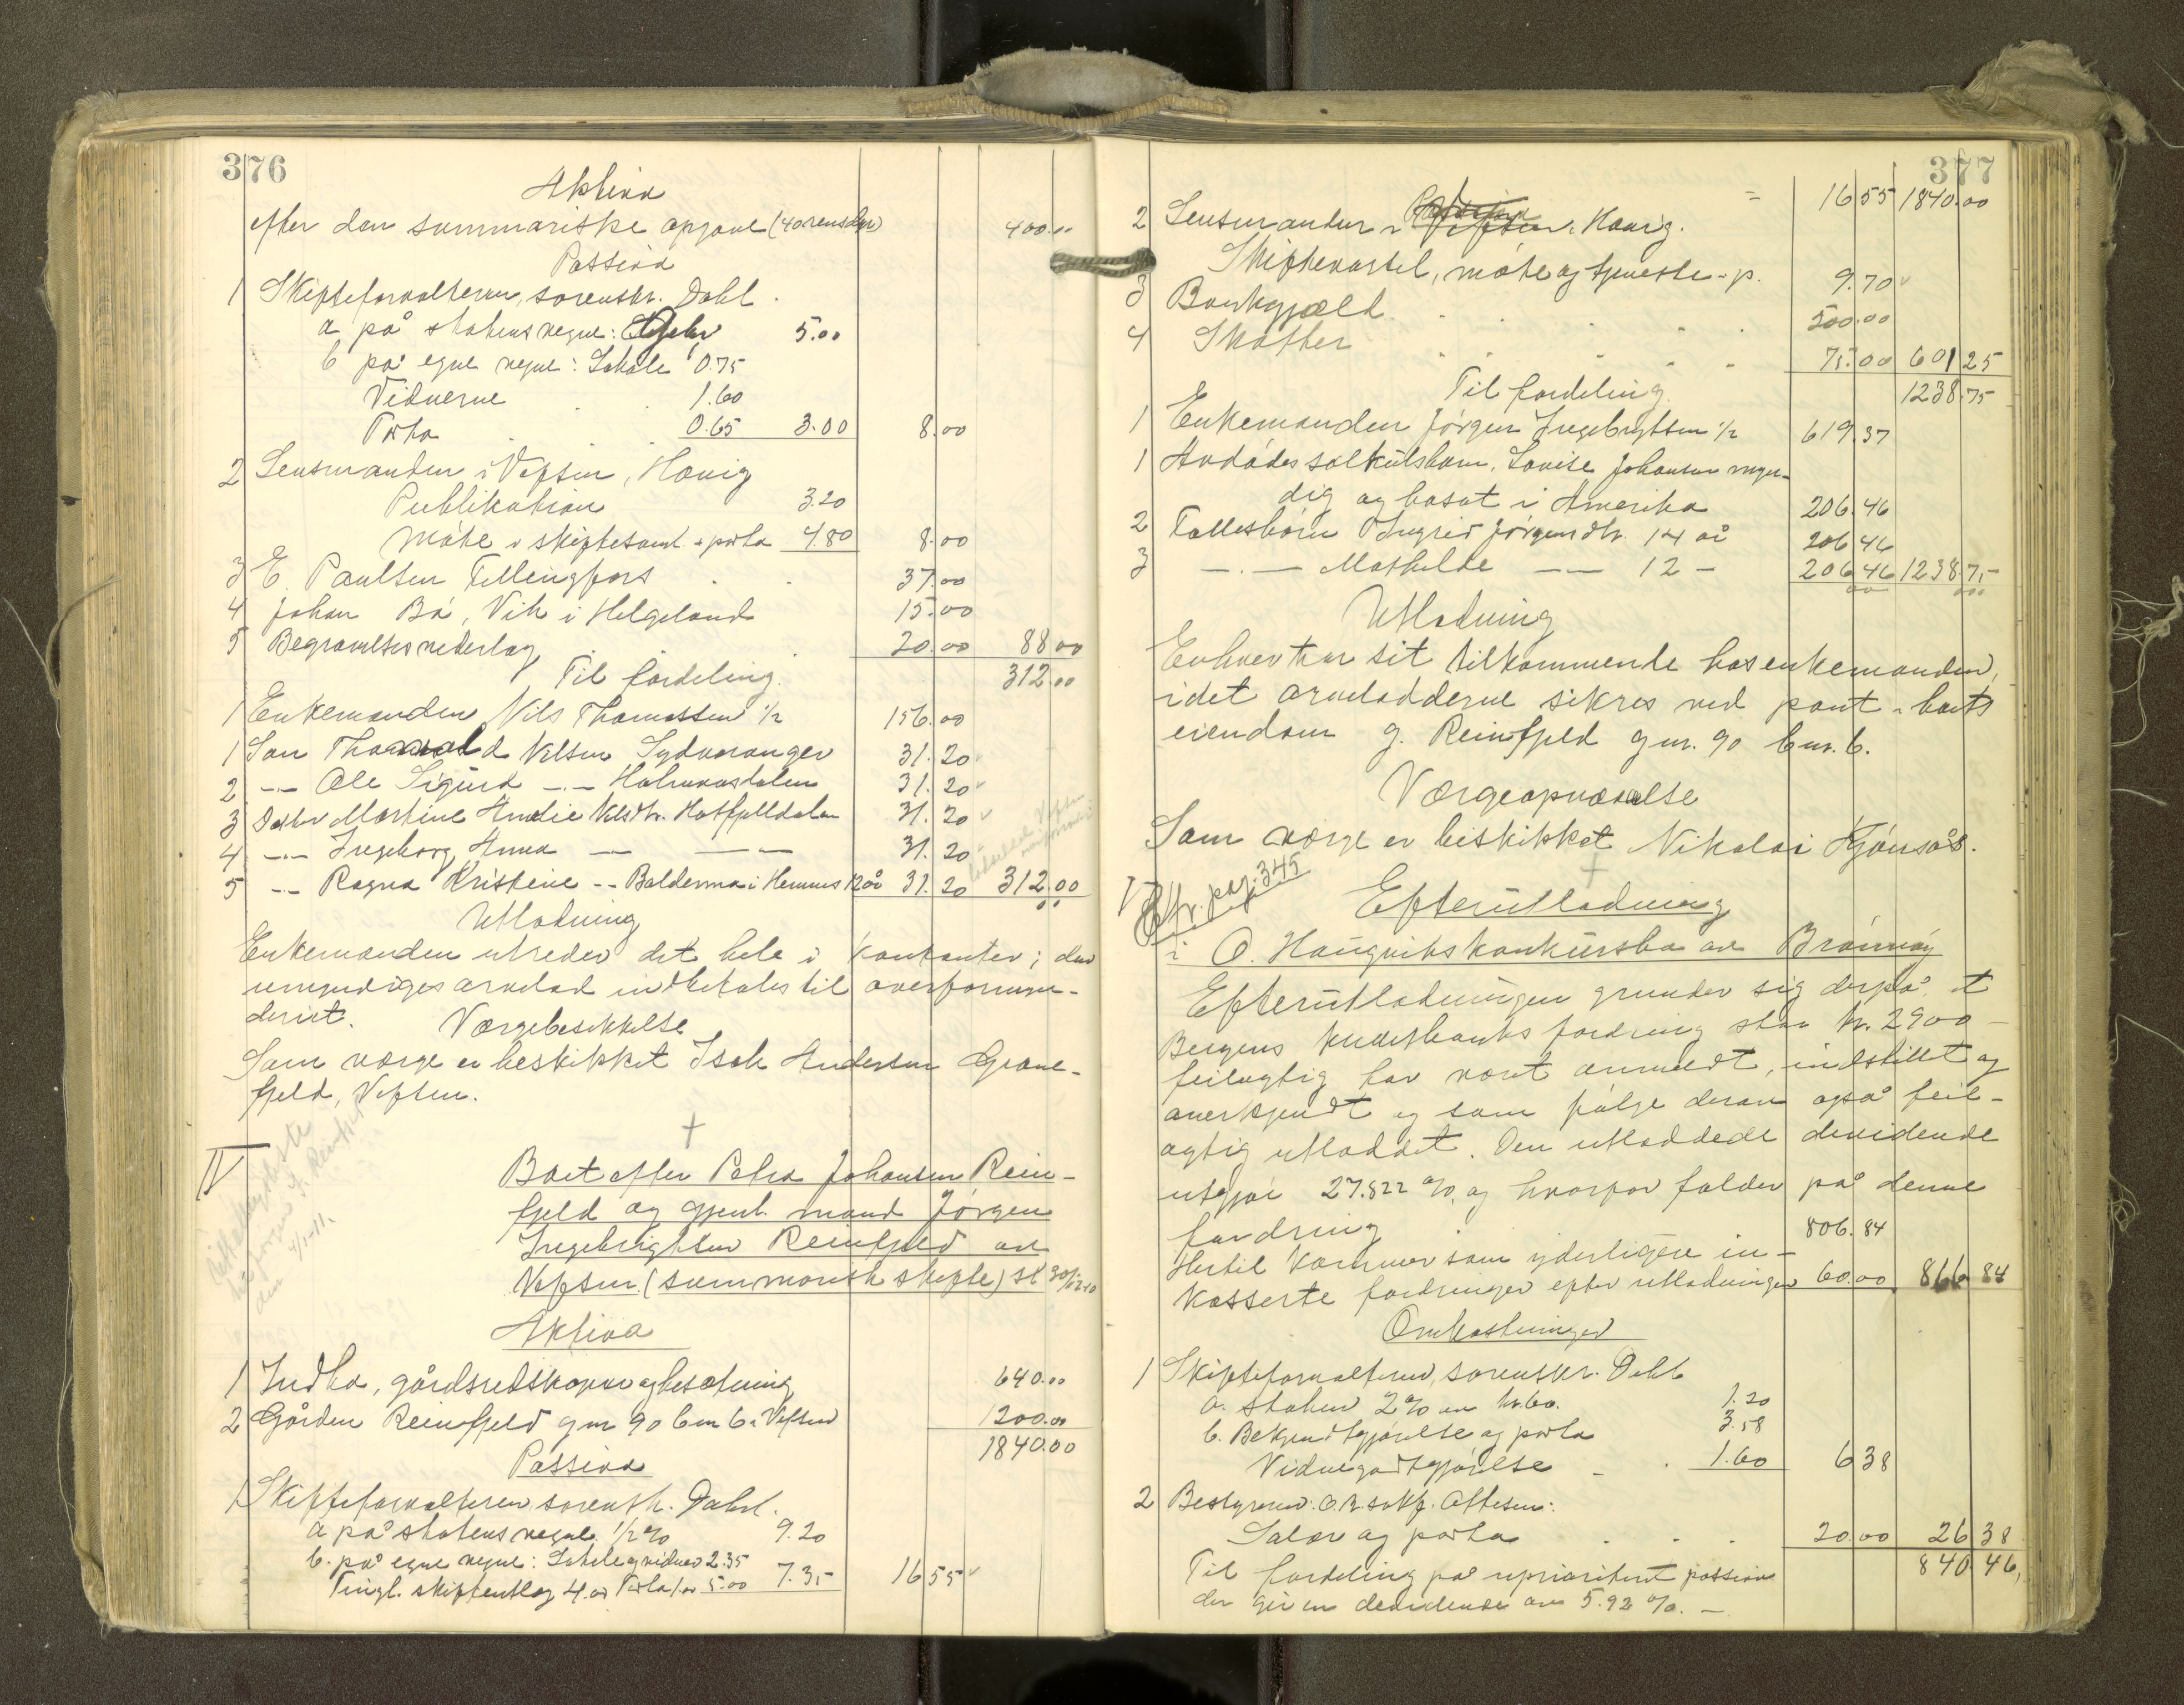 376
Aktiva
efter den summariske opgave (40 rensdyr) 400.00
Passiva
1 Skifteforvalteren, sorenskr. Dahl.
a på statens regne: Gebyr 5.00
b på egne regne: Lokale 0.75
Vidnerne 1.60
Porto 0.65 3.00 8.00
2 Lensmanden i Vefsen, Havig
Publikation 3.20
Møte i skiftesaml. + porto 4.80 8.00
3 E. Paulsen Tellingfors 37.00
4 Johan Bø, Vik i Helgeland 15.00
5 Begravelsesvederlag 20.00 88.00
Til fordeling. 312.00
1 Enkemanden Nils Thomassen 1/2 156.00
1 Søn Thorvald Nilsen Sydvaranger 31.20
2 -- Ole Sigurd -.- 31.20
3 Datter Martine Amalie Nilsdtr. Hatfjelldalen 31.20
4 -.- Ingeborg Anna — — — 31.20
5 -- Ragna Kristine -- i Hemnes 12 år 31.20 312.00
Utlodning
Enkemanden utreder det hele i kontanter; den
umyndiges arvelod indbetales til overformyn-
deriet.
Værgebeskikkelse
Som værge er beskikket Isak Andersen Grane-
fjeld, Vefsen.
+
IV
Boet efter Petra Johansen Rein-
fjeld og gjenl. mand Jørgen
Ingebrigtsen Reinfjeld av
Vefsen (summarisk skifte) sl 30/12 10
Aktiva
1 Indbo, gårdsredskaper og besætning 640.00
2 Gården Reinfjeld gnr 90 bnr 6 i Vefsen 1200.00
1840.00
Passiva
1 Skifteforvalteren sorenskr. Dahl.
a på statens regne 1/2 % 9.20
b. på egne regne: Lokale og vidner 2.35
Tingl. skifteutlæg 4.00 Porto 1.00 5.00 7.35 16.55
377
16.55 1840.00
2 Lensmanden i Vefsen, Havig.
Skiftevarsel, møte og tjeneste + p. 9.70
3 Bankgjæld 500.00
4 Skatter 75.00 601.25
Til fordeling. 1238.75
1 Enkemanden Jørgen Ingebrigtsen 1/2 619.37
1 Avdødes særkulsbarn, Lovise Johansen myn-
dig og bosat i Amerika 206.46
2 Fællesbarn Ingrid Jørgensdtr. 14 år 206.46
3 —.— Mathilde —— 12 - 206.46 1238.75
Utlodning
Enhver har sit tilkommende hos enkemanden,
idet arveloddene sikres ved pant i boets
eiendom g. Reinfjeld gnr. 90 bnr. 6.
Værgeopnævnelse
Som værge er beskikket Nikolai Kjønsås.
+
V
Cfr. pag. 345
Efterutlodning
i O. Haugviks konkursbo av Brønnøy
Efterutlodningen grunder sig derpå at
Bergens Kreditbanks fordring stor kr. 2900 -
feilagtig har vært anmeldt, indstillet og
anerkjendt og som følge derav også feil-
agtig utloddet. Den utloddede dividende
utgjør 27.822 %, og hvorfor falder på denne
fordring 806.84
Hertil kommer som yderligere in-
kasserte fordringer efter utlodningen 60.00 866.84
Omkostninger
1 Skifteforvalteren, sorenskr. Dahl
a. staten 2 % av kr. 60. 1.20
b. Bekjendtgjørelse og porto 3.58
Vidnegodtgjørelse 1.60 6.38
2 Bestyreren: O.R. sakf. Ottesen:
Salær og porto 20.00 26.38
Til fordeling på uprioritert passiva 840.46,
der gir en dividende av 5.92 %. —